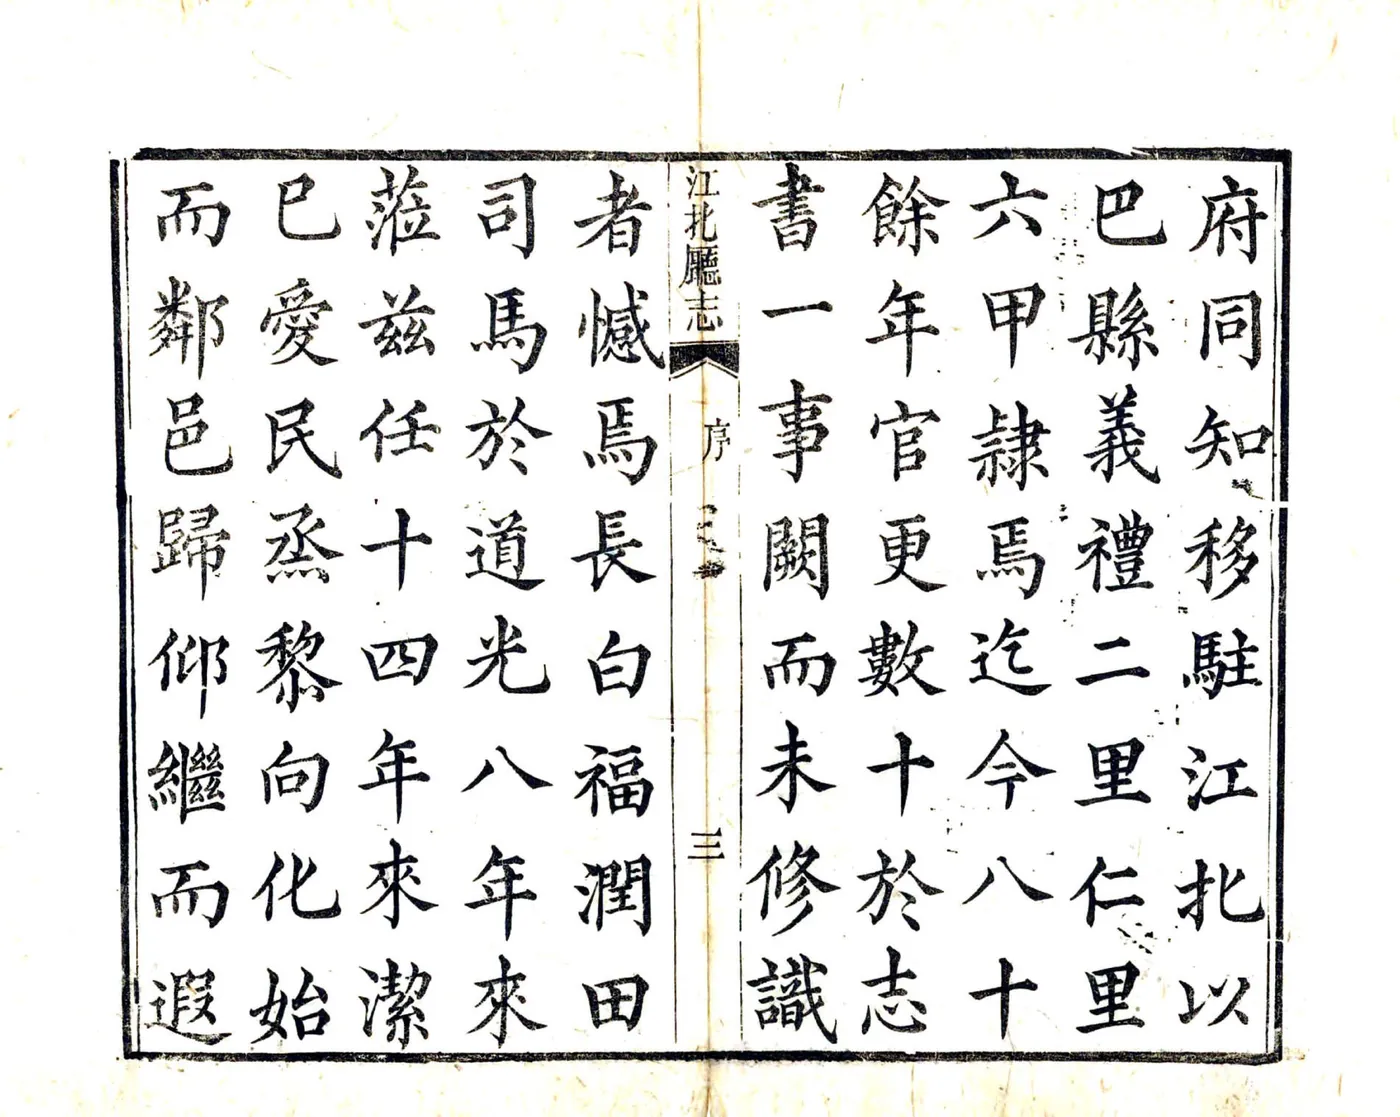 府同知移駐江北以
巴縣義禮二里仁里
六甲隷焉迄今八十
餘年官更數十於志
書一事闕而未修識
江北廳志
序
三
者憾焉長白福潤田
司馬於道光八年來
蒞兹任十四年來潔
已愛民烝黎向化始
而鄰邑歸仰繼而遐